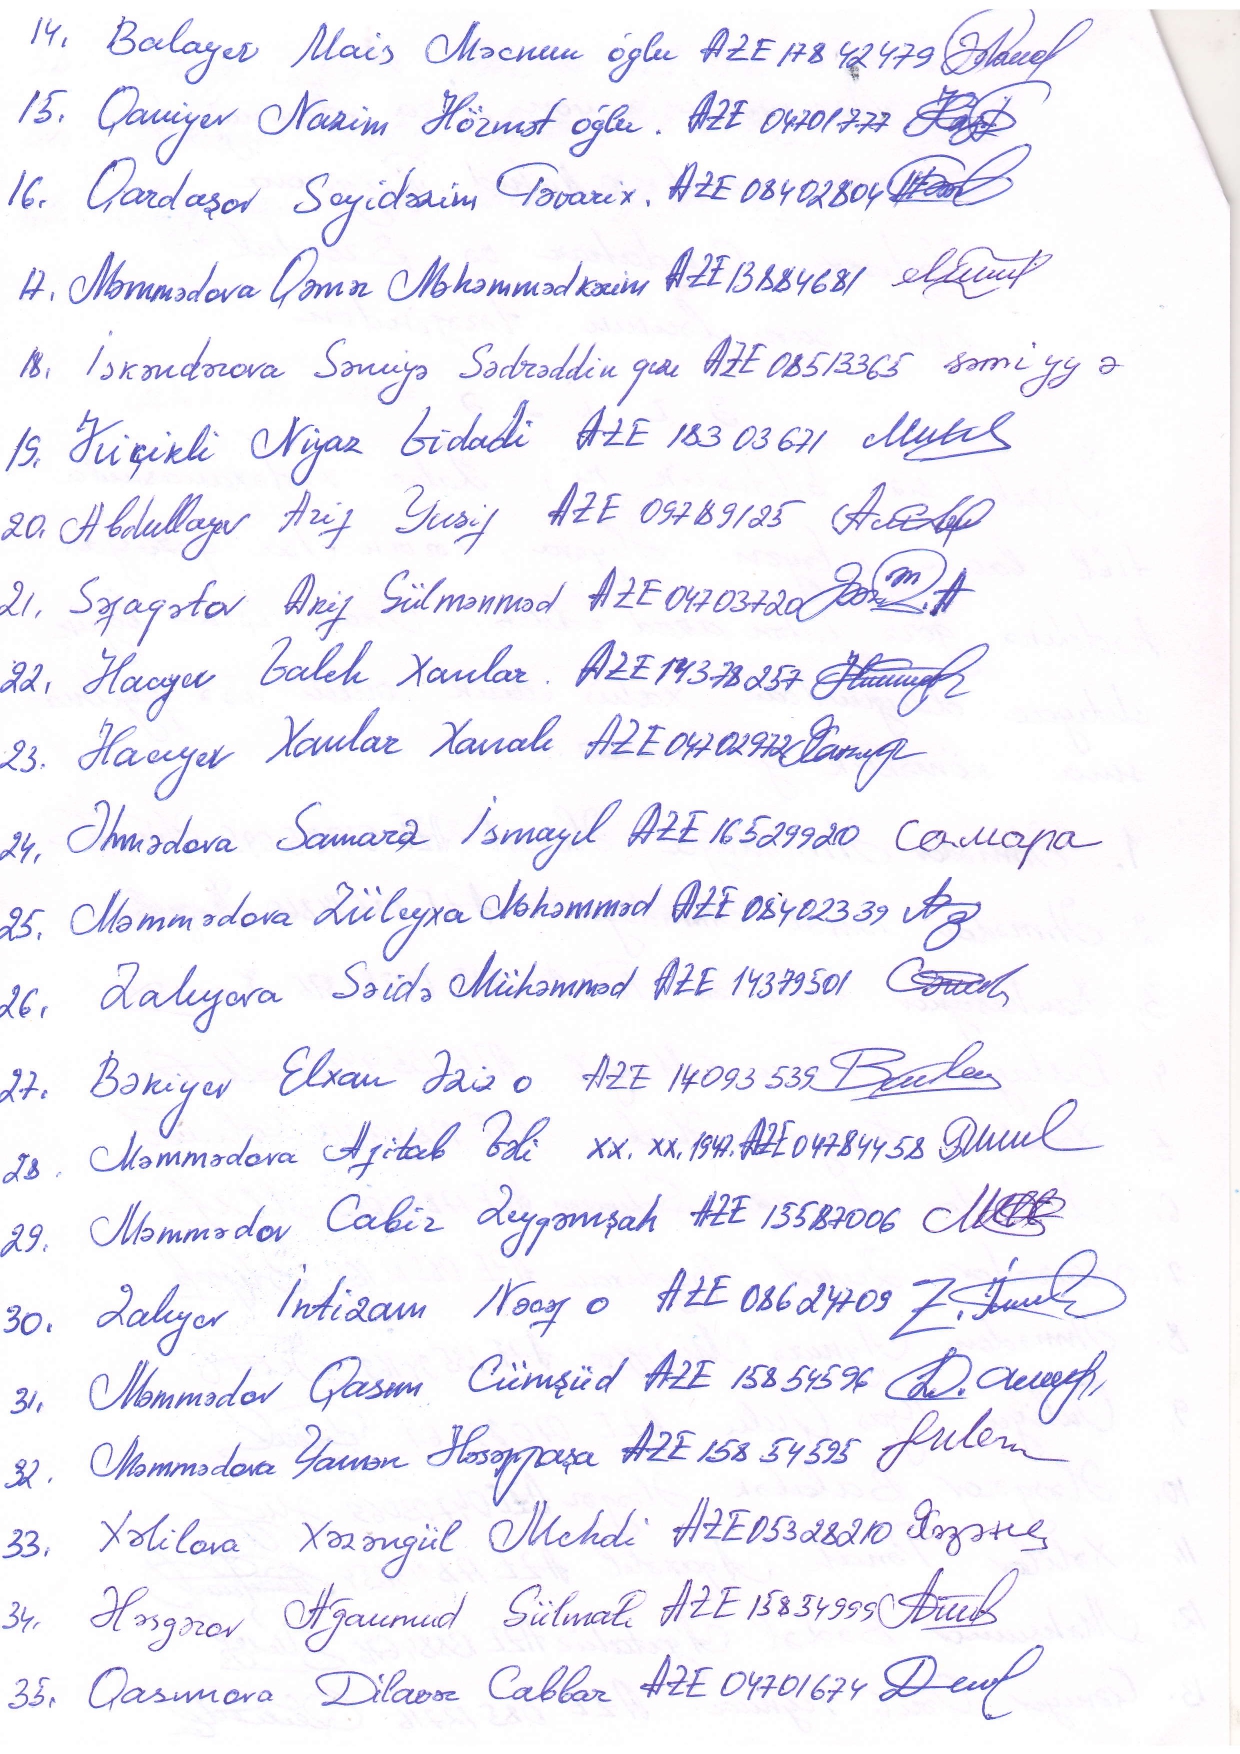 14. Balayev Mais Məcnun oğlu AZE 17842479
15. Qaniyev Nazim Hörmət oğlu. AZE 04701777
16. Qardaşov Seyidəzim Təvarix. AZE 08402804
17. Məmmədova Qəmər Məhəmmədkərim AZE 13884681
18. İskəndərova Səmiyə Sədrəddin qızı AZE 08513365 səmiyyə
19. Kiçikli Niyaz Gidadi AZE 18303671
20. Abdullayev Arif Yusif AZE 09789125
21. Səfaqətov Arif Gülməmməd AZE 04703720
22. Hacıyev Taleh Xanlar. AZE 14378257
23. Hacıyev Xanlar Xanalı AZE 04702972
24. Əhmədova Samara İsmayıl AZE 16529920 Самара
25. Məmmədova Züleyxa Məhəmməd AZE 08402339
26. Zalıyeva Səidə Mühəmməd AZE 14379501
27. Bəkiyev Elxan Əziz o AZE 14093539
28. Məmmədova Afitab Vəli xx. xx. 1947. AZE 04784458
29. Məmmədov Cabir Zeyqəmşah AZE 15587006
30. Zalıyev İntizam Nəcəf o AZE 08624709
31. Məmmədov Qasım Cümşüd AZE 15854596
32. Məmmədova Yaman Həsənpaşa AZE 15854595
33. Xəlilova Xəzəngül Mehdi AZE 05328210
34. Həsgərov Ağaumud Gülmalı AZE 15834999
35. Qasımova Dilavər Cabbar AZE 04701674